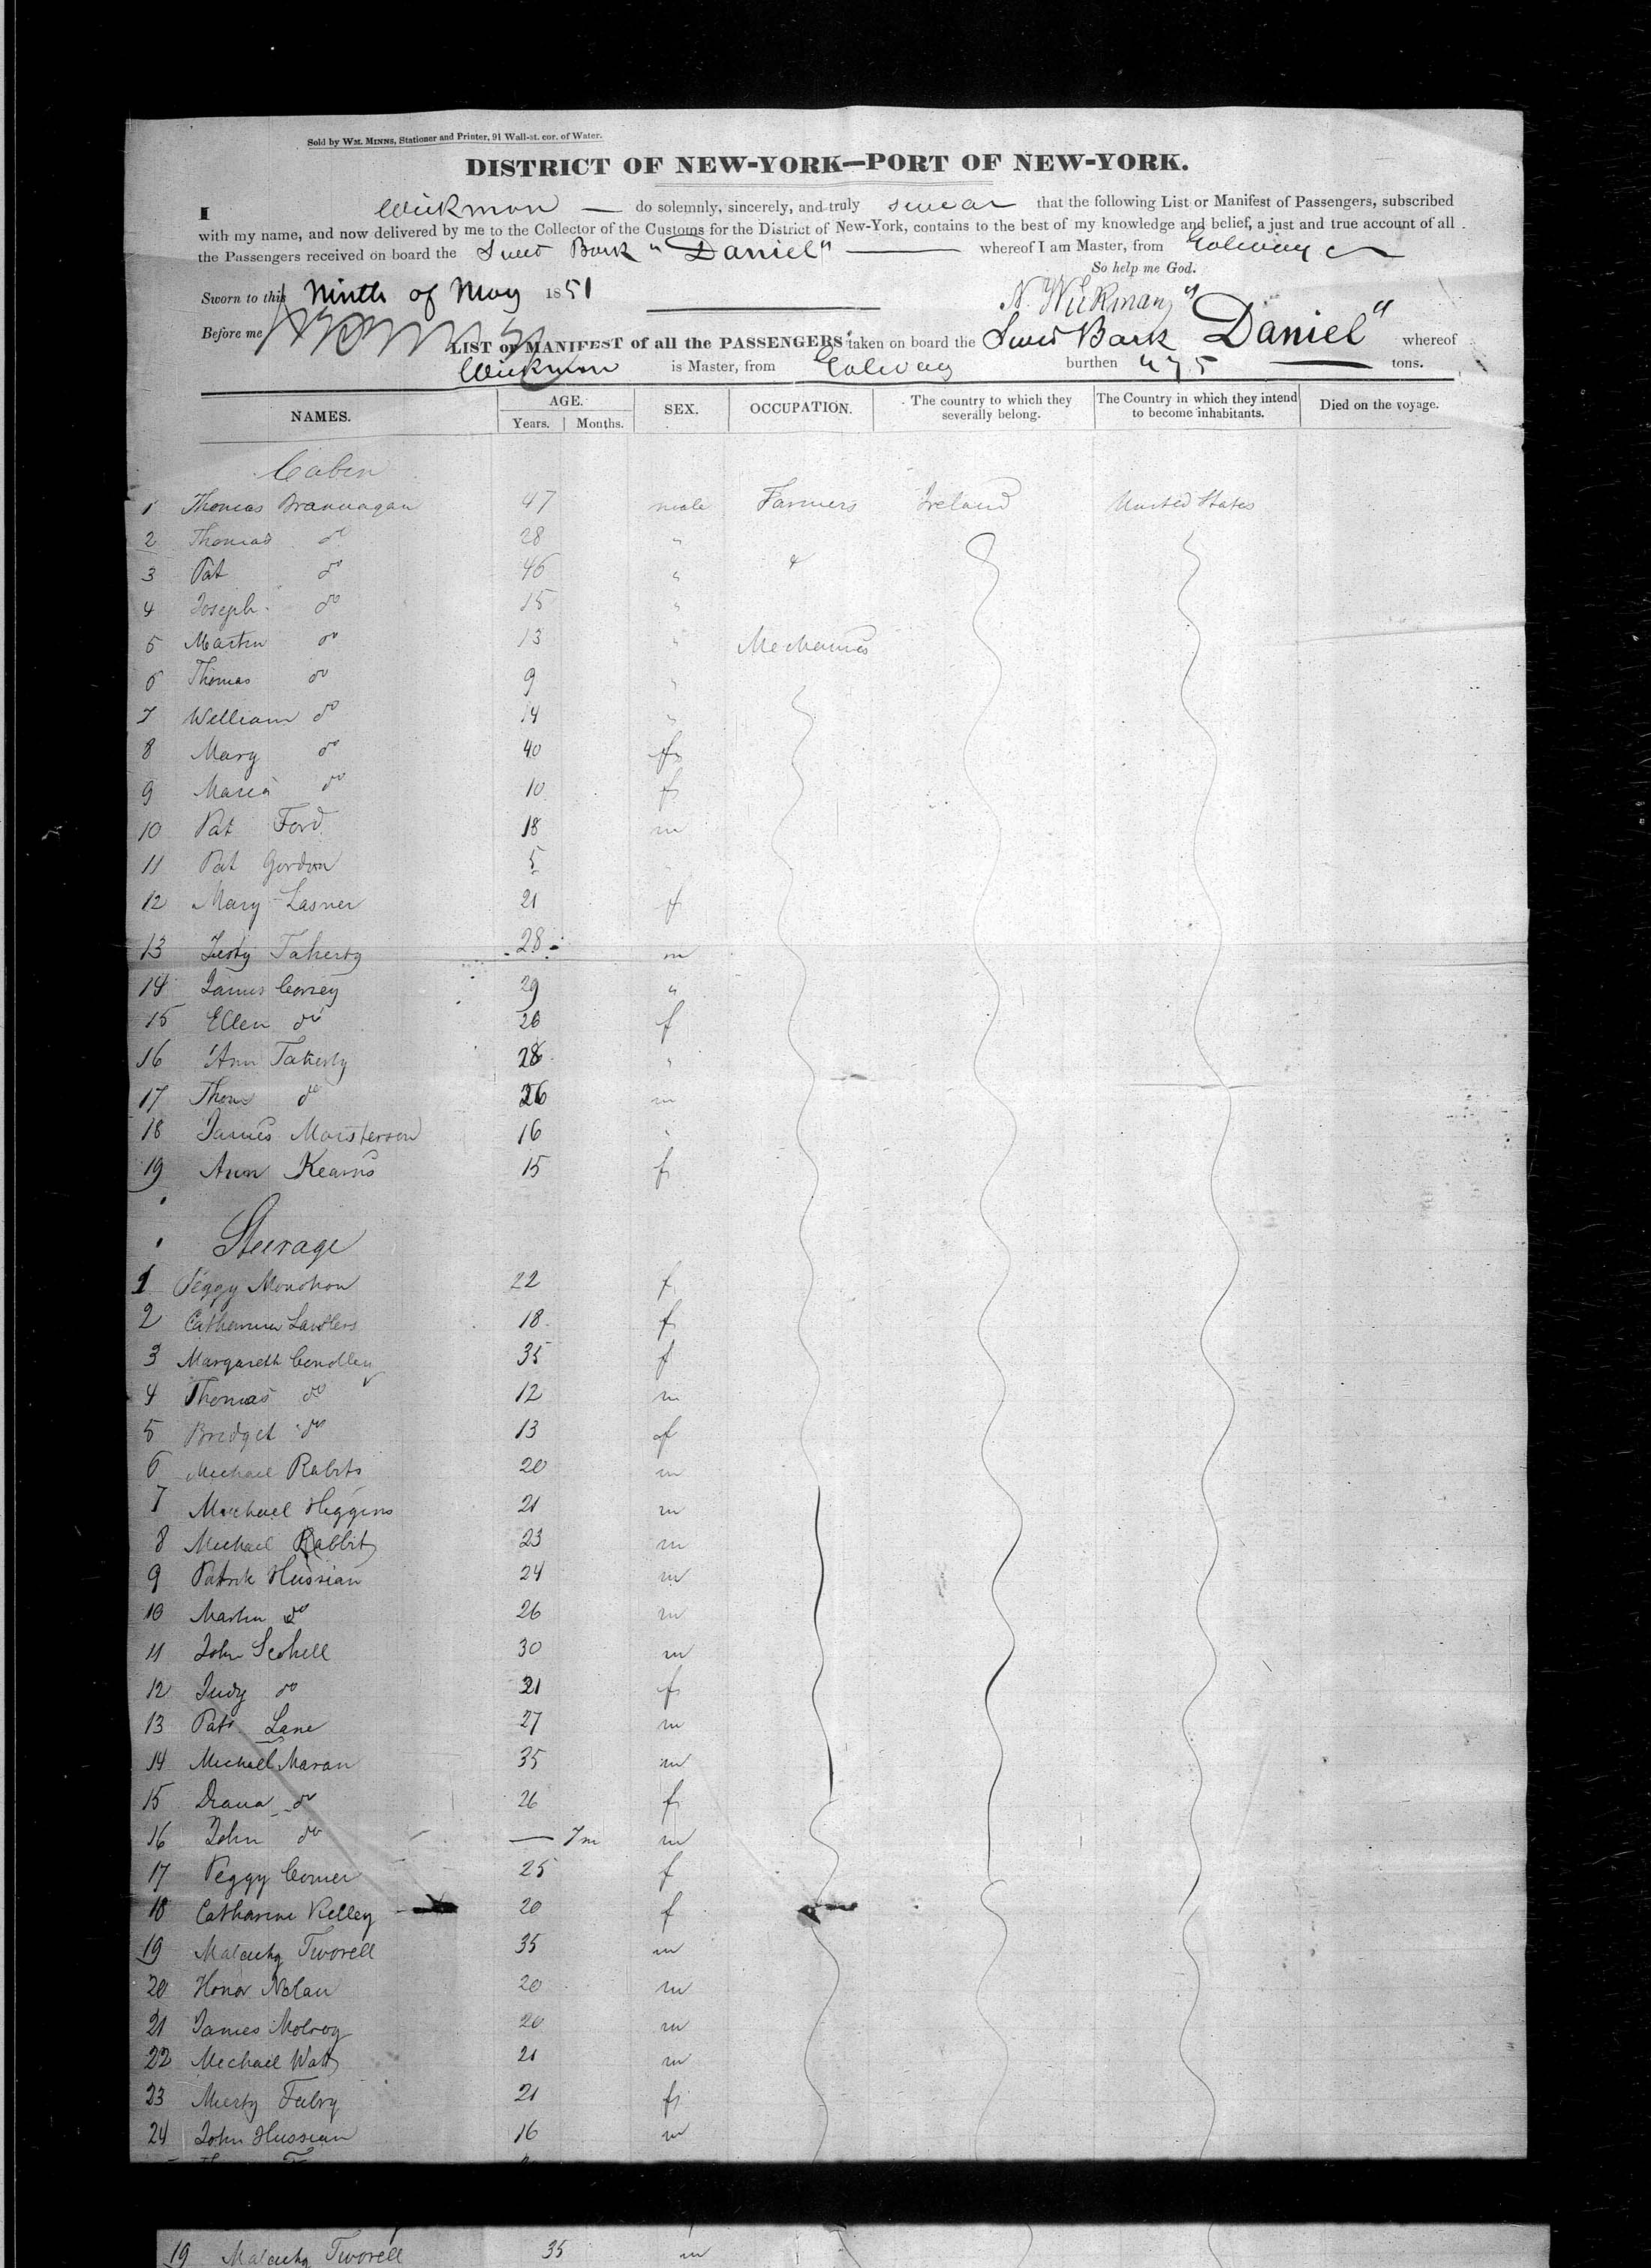 Sold by WM. MINNS, Stationer and Printer, 91 Wall-st. cor. of Water.
DISTRICT OF NEW-YORK—PORT OF NEW-YORK.
I Wickman — do solemnly, sincerely, and truly swear that the following List or Manifest of Passengers, subscribed
with my name, and now delivered by me to the Collector of the Customs for the District of New-York, contains to the best of my knowledge and belief, a just and true account of all
the Passengers received on board the Swed Bark "Daniel" — whereof I am Master, from Galway
So help me God.
Sworn to this Ninth of May 1851
N. Wickman
Before me
LIST or MANIFEST of all the PASSENGERS taken on board the Swed Bark "Daniel" whereof
Wickman is Master, from Galway burthen 475 tons.
NAMES. AGE. Years. Months. SEX. OCCUPATION. The country to which they severally belong. The Country in which they intend to become inhabitants. Died on the voyage.
Cabin
1 Thomas Brannagan 47 male Farmers Ireland United States
2 Thomas do 28 "
3 Pat do 46 " &
4 Joseph do 15 "
5 Martin do 13 " Mechanics
6 Thomas do 9 "
7 William do 14 "
8 Mary do 40 f
9 Maria do 10 f
10 Pat Ford 18 m
11 Pat Gordon 5
12 Mary Lasner 21 f
13 Festy Faherty 28 m
14 James Correy 29 "
15 Ellen do 26 f
16 Ann Faherty 28 "
17 Thoms do 26 m
18 James Maisterson 16 "
19 Ann Kearns 15 f
Steerage
1 Peggy Monohon 22 f
2 Catherine Lawless 18 f
3 Margareth Condley 35 f
4 Thomas do 12 m
5 Bridget do 13 f
6 Michael Rabits 20 m
7 Michael Higgins 21 m
8 Michael Rabbit 23 m
9 Patrik Hussian 24 m
10 Martin do 26 m
11 John Scohell 30 m
12 Judy do 21 f
13 Pat Lane 27 m
14 Michael Maran 35 m
15 Diana do 26 f
16 John do — 7m m
17 Peggy Comer 25 f
18 Catharine Kelley 20 f
19 Malachy Tworell 35 m
20 Honor Nolan 20 m
21 James Molroy 20 m
22 Mechael Watt 21 m
23 Murty Falvy 21 f
24 John Hussian 16 m
19 Malachy Tworell 35 m